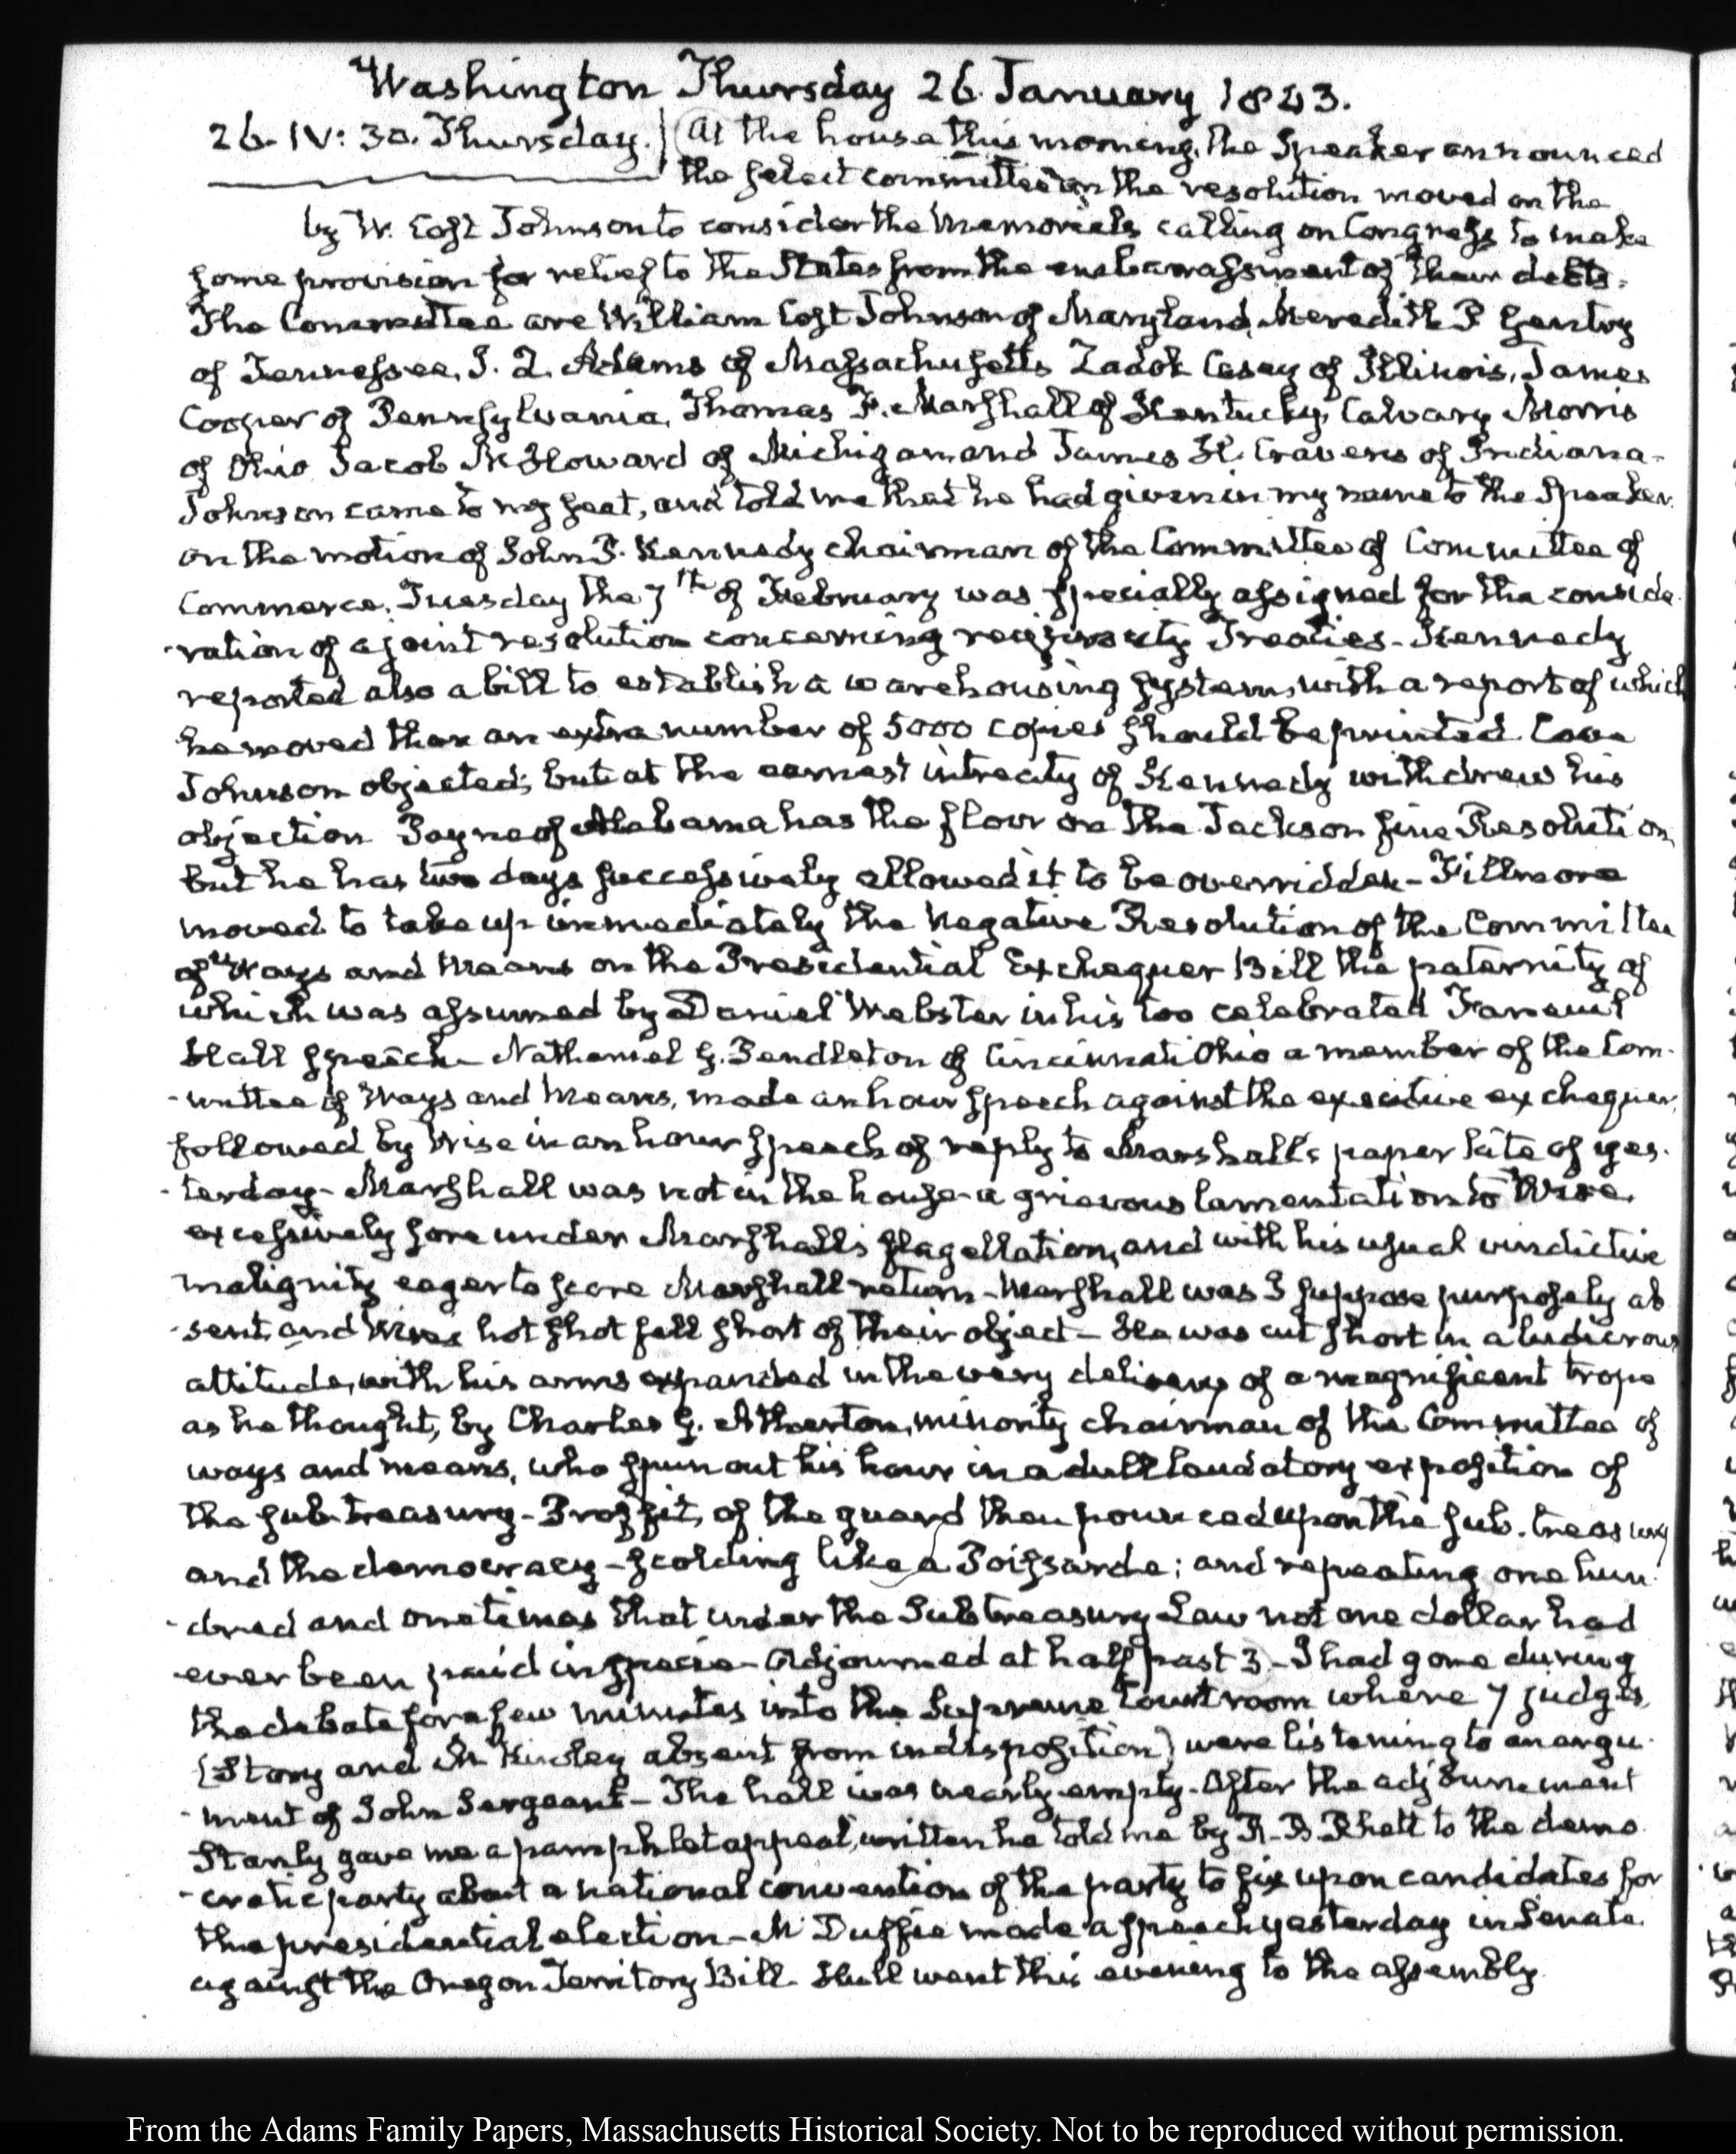 Washington Thursday 26. January 1843.
26. IV: 30. Thursday. At the house this morning, the Speaker announced
the select committee on the resolution moved on the
by W. Cost Johnson to consider the Memorials calling on Congress to make
some provision for relief to the States from the embarrassment of their debts.
The Committee are William Cost Johnson of Maryland, Meredith P Gentry
of Tennessee, J. Q. Adams of Massachusetts Zadok Casey of Illinois, James
Cooper of Pennsylvania, Thomas F. Marshall of Kentucky, Calvary Morris
of Ohio Jacob M Howard of Michigan and James H. Cravens of Indiana-
Johnson came to my seat, and told me that he had given in my name to the Speaker.
on the motion of John P. Kennedy chairman of the Committee of Committee of
Commerce, Tuesday the 7th of February was specially assigned for the conside
-ration of a joint resolution concerning reciprocity Treaties- Kennedy
reported also a bill to establish a warehousing system, with a report of which
he moved that an extra number of 5000 copies should be printed. Cave
Johnson objected; but at the earnest intreaty of Kennedy withdrew his
objection Payne of Alabama has the floor on the Jackson fine Resolution,
but he has two days successively allowed it to be overridden- Fillmore
moved to take up immediately the Negative Resolution of the Committee
of Ways and Means on the Presidential Exchequer Bill the paternity of
which was assumed by Daniel Webster in his too celebrated Faneuil
Hall speech- Nathaniel G. Pendleton of Cincinnati Ohio a member of the Com-
-mittee of Ways and Means, made an hour speech against the executive exchequer,
followed by Wise in an hour speech of reply to Marshall's paper kite of yes-
-terday- Marshall was not in the house- a grievous lamentation to Wise,
excessively sore under Marshall's flagellation, and with his usual vindictive
malignity eager to score Marshall in return- Marshall was I suppose purposely ab
-sent, and Wise's hot shot fell short of their object- He was cut short in a ludicrous
attitude, with his arms expanded in the very delivery of a magnificent trope
as he thought, by Charles G. Atherton, minority chairman of the Committee of
ways and means, who spun out his hour in a dull laudatory exposition of
the sub-treasury- Proffit, of the guard then pounced upon the sub-treasury
and the democracy- scolding like a Poissarde; and repeating one hun-
-dred and one times that under the Subtreasury Law not one dollar had
ever been paid in specie- Adjourned at half past 3- I had gone during
the debate for a few minutes into the Supreme Court room where 7 judges,
(Story and McKinley absent from indisposition) were listening to an argu-
-ment of John Sergeant- The hall was nearly empty- After the adjournment
Stanly gave me a pamphlet appeal, written he told me by R. B. Rhett to the demo
-cratic party about a national convention of the party to fix upon candidates for
the presidential election- McDuffie made a speech yesterday in Senate
against the Oregon Territory Bill- Hull went this evening to the assembly
From the Adams Family Papers, Massachusetts Historical Society. Not to be reproduced without permission.